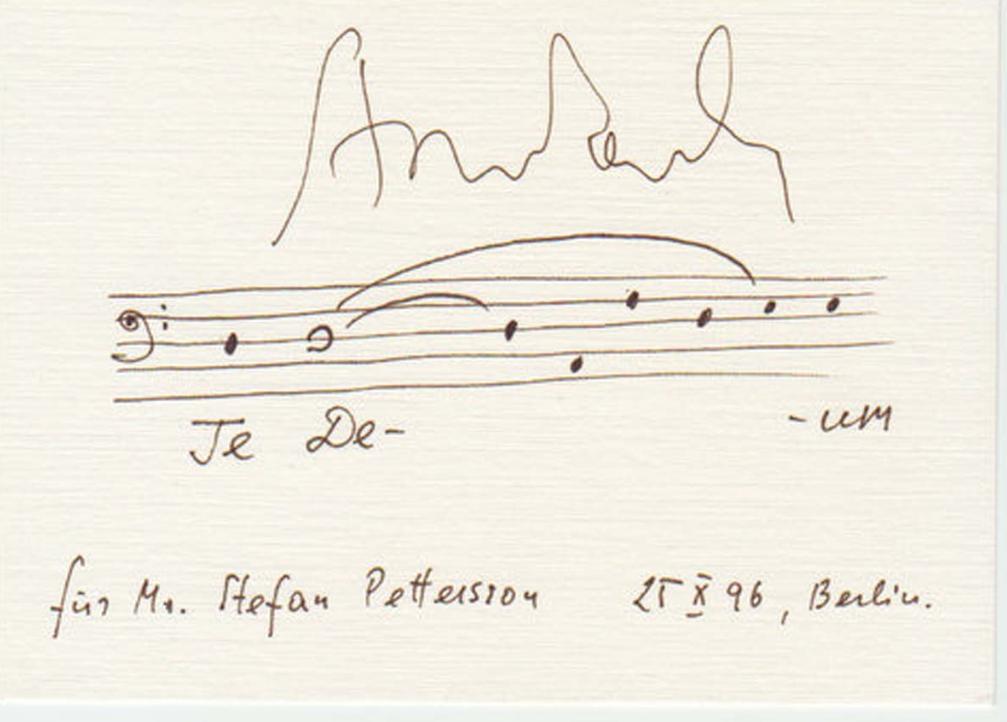 Te De- -um
für Mr. Stefan Pettersson 25 X 96, Berlin.